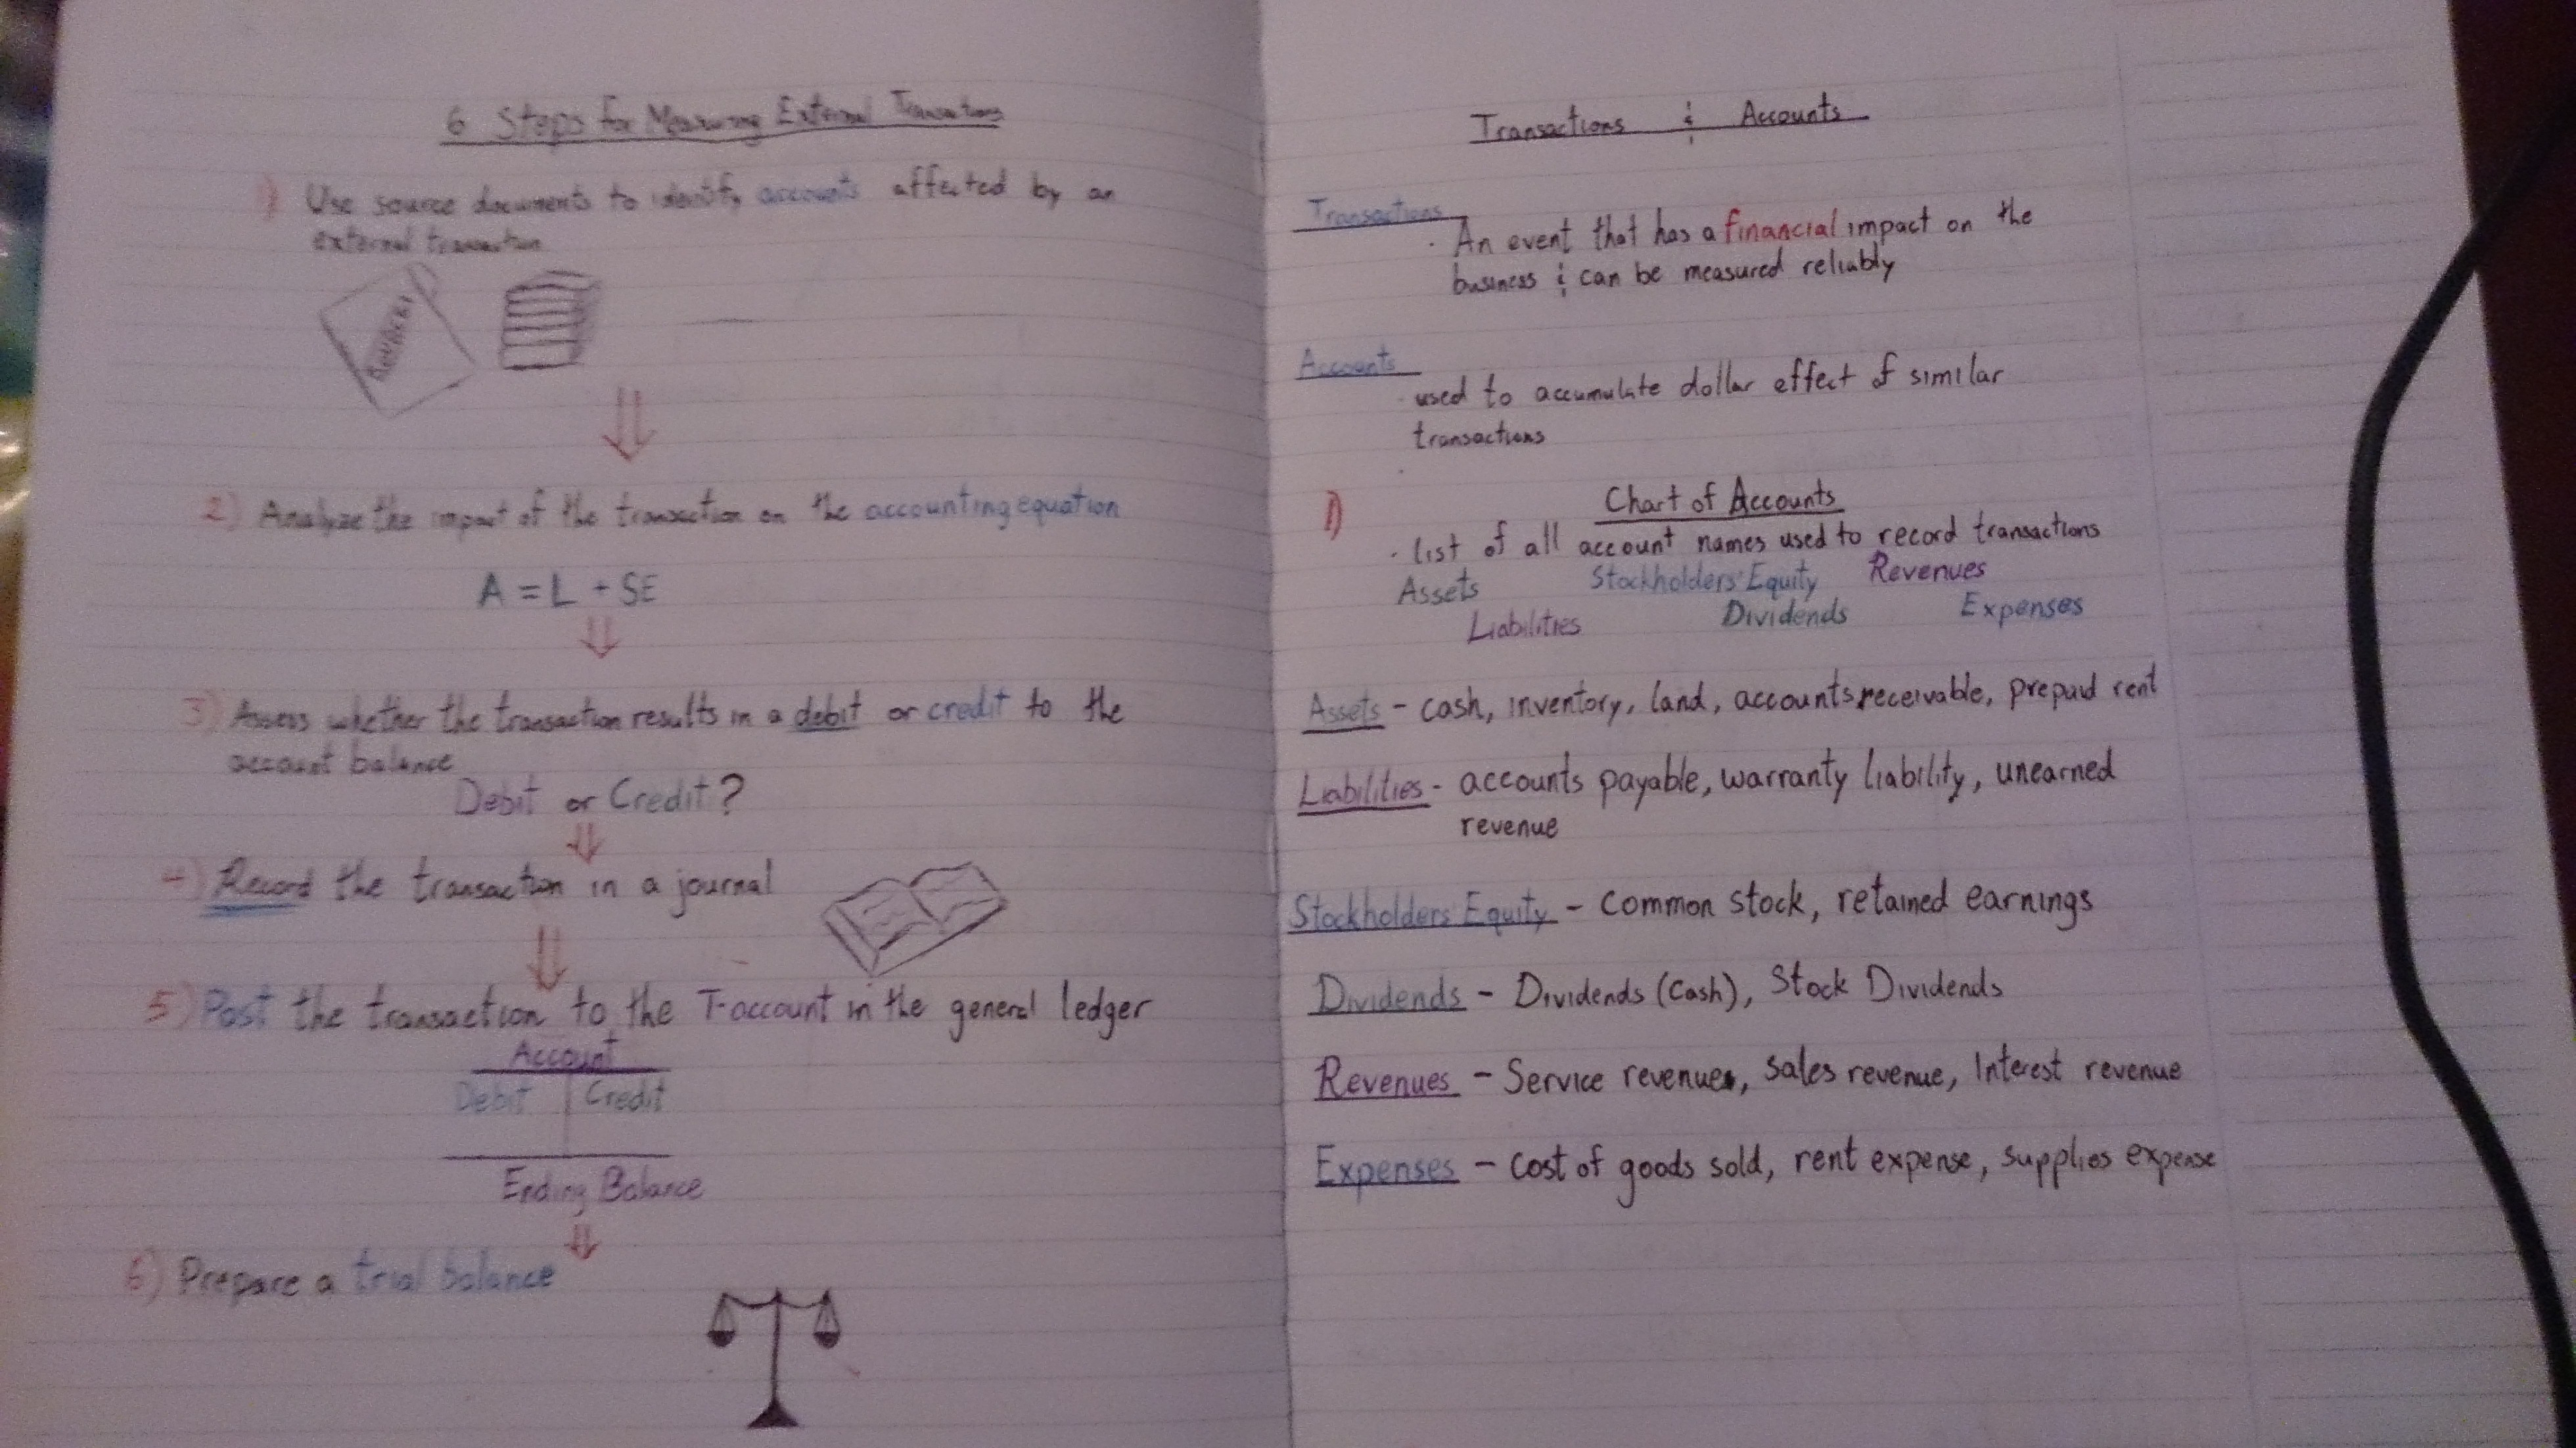 6 Steps for Measuring External Transactions
1) Use source documents to identify accounts affected by an
external transaction
2) Analyze the impact of the transaction on the accounting equation
A = L + SE
3) Assess whether the transaction results in a debit or credit to the
account balance
Debit or Credit?
4) Record the transaction in a journal
5) Post the transaction to the T-account in the general ledger
Account
Debit Credit
Ending Balance
6) Prepare a trial balance
Transactions & Accounts
Transactions
· An event that has a financial impact on the
business & can be measured reliably
Accounts
· used to accumulate dollar effect of similar
transactions
1) Chart of Accounts
· list of all account names used to record transactions
Assets Stockholders' Equity Revenues
Liabilities Dividends Expenses
Assets - cash, inventory, land, accounts receivable, prepaid rent
Liabilities - accounts payable, warranty liability, unearned
revenue
Stockholders Equity - Common stock, retained earnings
Dividends - Dividends (Cash), Stock Dividends
Revenues - Service revenue, sales revenue, Interest revenue
Expenses - cost of goods sold, rent expense, supplies expense